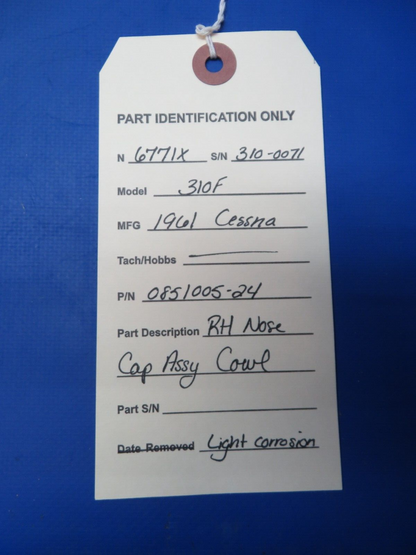 PART IDENTIFICATION ONLY
N 6771X S/N 310-0071
Model 310F
MFG 1961 Cessna
Tach/Hobbs
P/N 0851005-24
Part Description RH Nose
Cap Assy Cowl
Part S/N
Date Removed Light corrosion